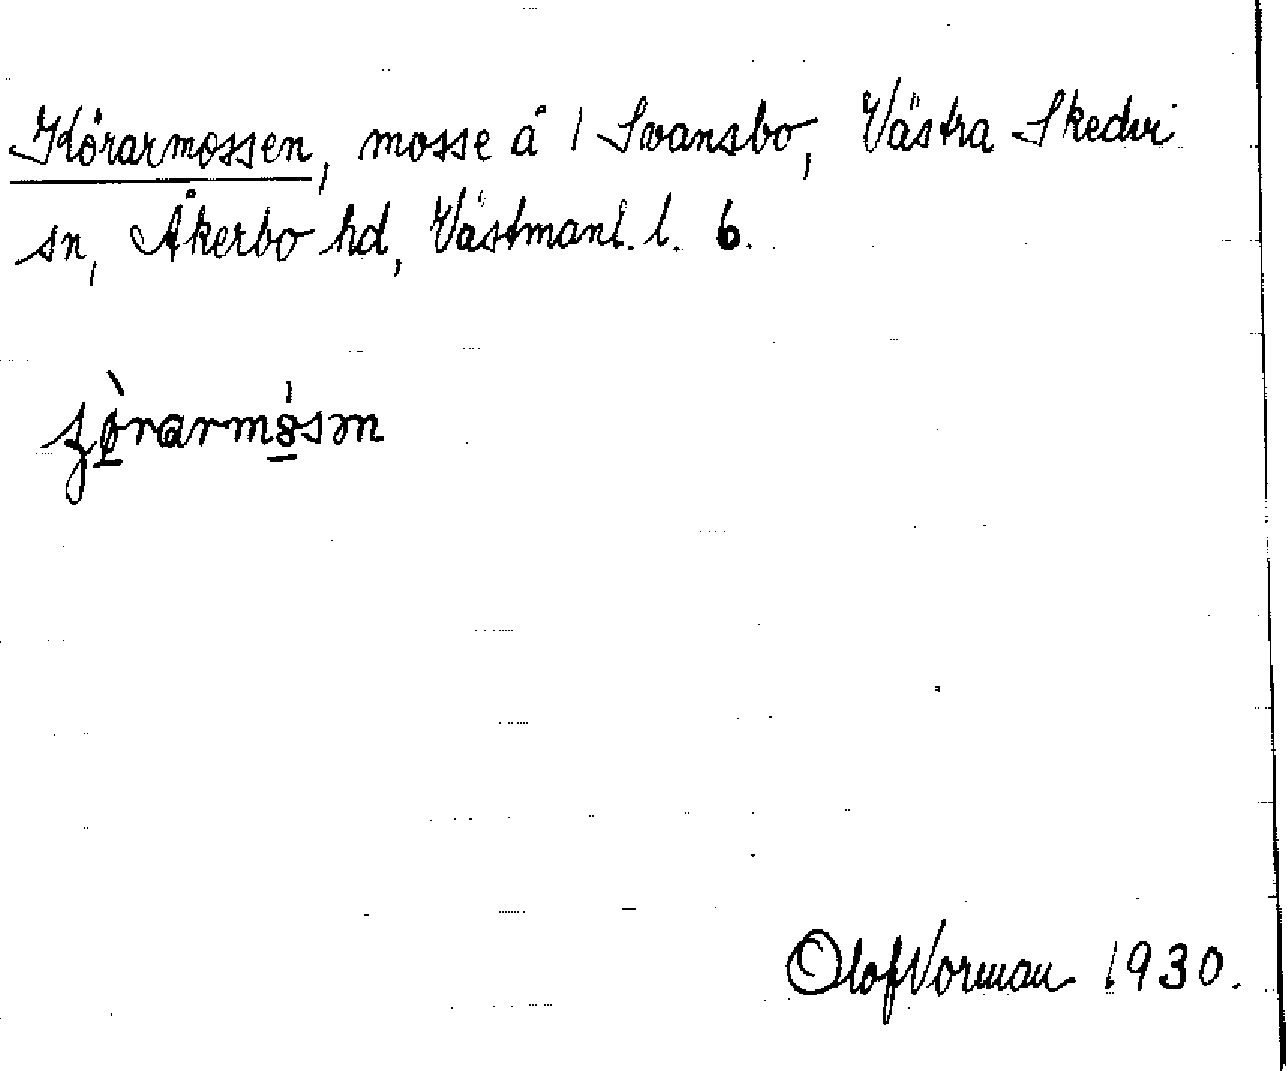 Körarmossen, mosse å 1 Svansbo, Västra Skedvi
sn, Åkerbo hd, Västmanl. l. 6.
Olof Norman 1930.